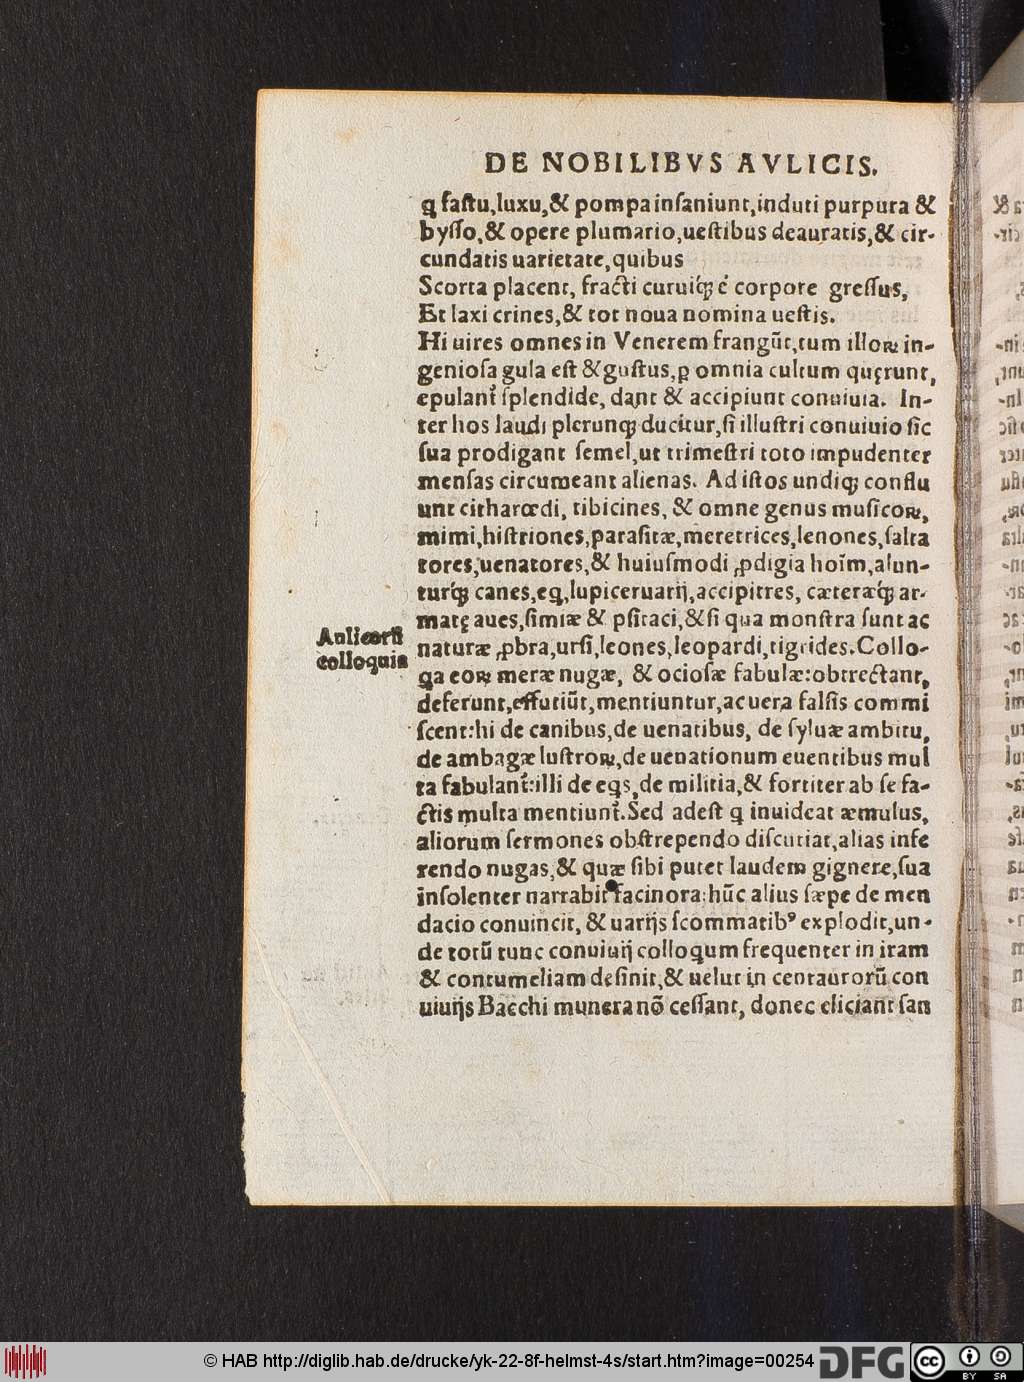 DE NOBILIBVS AVLICIS.
ꝗ fastu,luxu,& pompa insaniunt,induti purpura &
bysso,& opere plumario,uestibus deauratis,& cir-
cundatis uarietate,quibus
Scorta placent, fracti curuiq́ꝫ é corpore gressus,
Et laxi crines,& tot noua nomina uestis.
Hi uires omnes in Venerem frangũt,tum illoꝝ in-
geniosa gula est & gustus,ꝑ omnia cultum quęrunt,
epulant᷑ splendide, dant & accipiunt conuiuia. In-
ter hos laudi plerunqꝫ ducitur,si illustri conuiuio sic
sua prodigant semel,ut trimestri toto impudenter
mensas circumeant alienas. Ad istos undiqꝫ conflu
unt citharœdi, tibicines, & omne genus musicoꝝ,
mimi,histriones,parasitæ,meretrices,lenones,salta
tores,uenatores,& huiusmodi ꝓdigia hoĩm,alun-
turq́ꝫ canes,eꝗ,lupiceruarij,accipitres, cæteræq́ꝫ ar-
matę aues,simiæ & psitaci,& si qua monstra sunt ac
Aulicorũ
naturæ ꝓbra,ursi,leones,leopardi,tigrides.Collo-
colloquia
ꝗa eoꝝ meræ nugæ, & ociosæ fabulæ:obtrectant,
deferunt,effutiũt,mentiuntur,ac uera falsis commi
scent:hi de canibus,de uenatibus, de syluæ ambitu,
de ambagæ lustroꝝ,de uenationum euentibus mul
ta fabulant᷑:illi de eꝗs,de militia,& fortiter ab se fa-
ctis multa mentiunt᷑.Sed adest ꝗ inuideat æmulus,
aliorum sermones obstrependo discutiat,alias infe
rendo nugas,& quæ sibi putet laudem gignere,sua
insolenter narrabit facinora:hũc alius sæpe de men
dacio conuincit, & uarijs scommatibꝰ explodit,un-
de totũ tunc conuiuij colloꝗum frequenter in iram
& contumeliam desinit,& uelut in centaurorũ con
uiuijs Bacchi munera nõ cessant, donec eliciant san
© HAB http://diglib.hab.de/drucke/yk-22-8f-helmst-4s/start.htm?image=00254
DFG
cc
BY SA